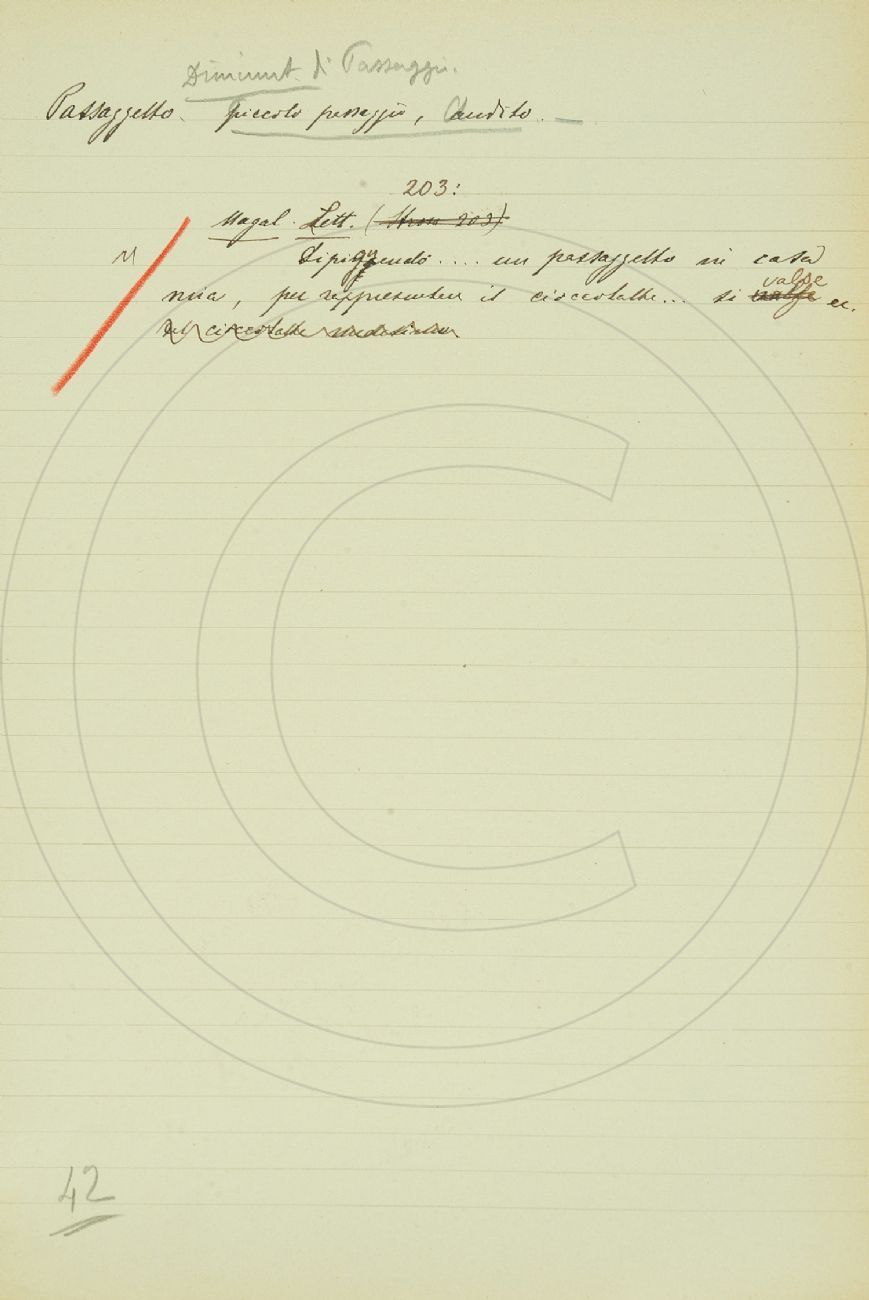 Diminut. di Passaggio.
Passaggetto. piccolo passaggio, Andito. —
203:
Magal. Lett. (Strom 203)
M Dipiggnendo .... un passaggetto in casa
valse
mia, per rappresentar il cioccolatte... si valse ec.
del cioccolatte medesimo
42